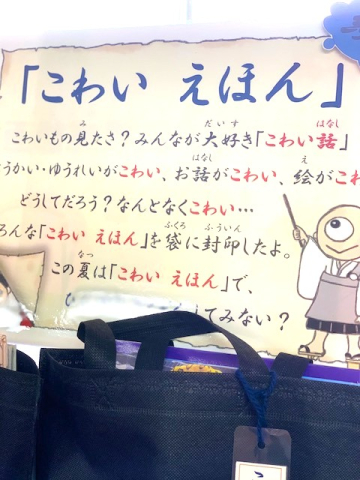 「こわい えほん」
こわいもの見たさ?みんなが大好き「こわい話」
うかい・ゆうれいがこわい、お話がこわい、絵がこわ
どうしてだろう?なんとなくこわい…
ろんな「こわい えほん」を袋に封印したよ。
この夏は「こわい えほん」で、
てみない?